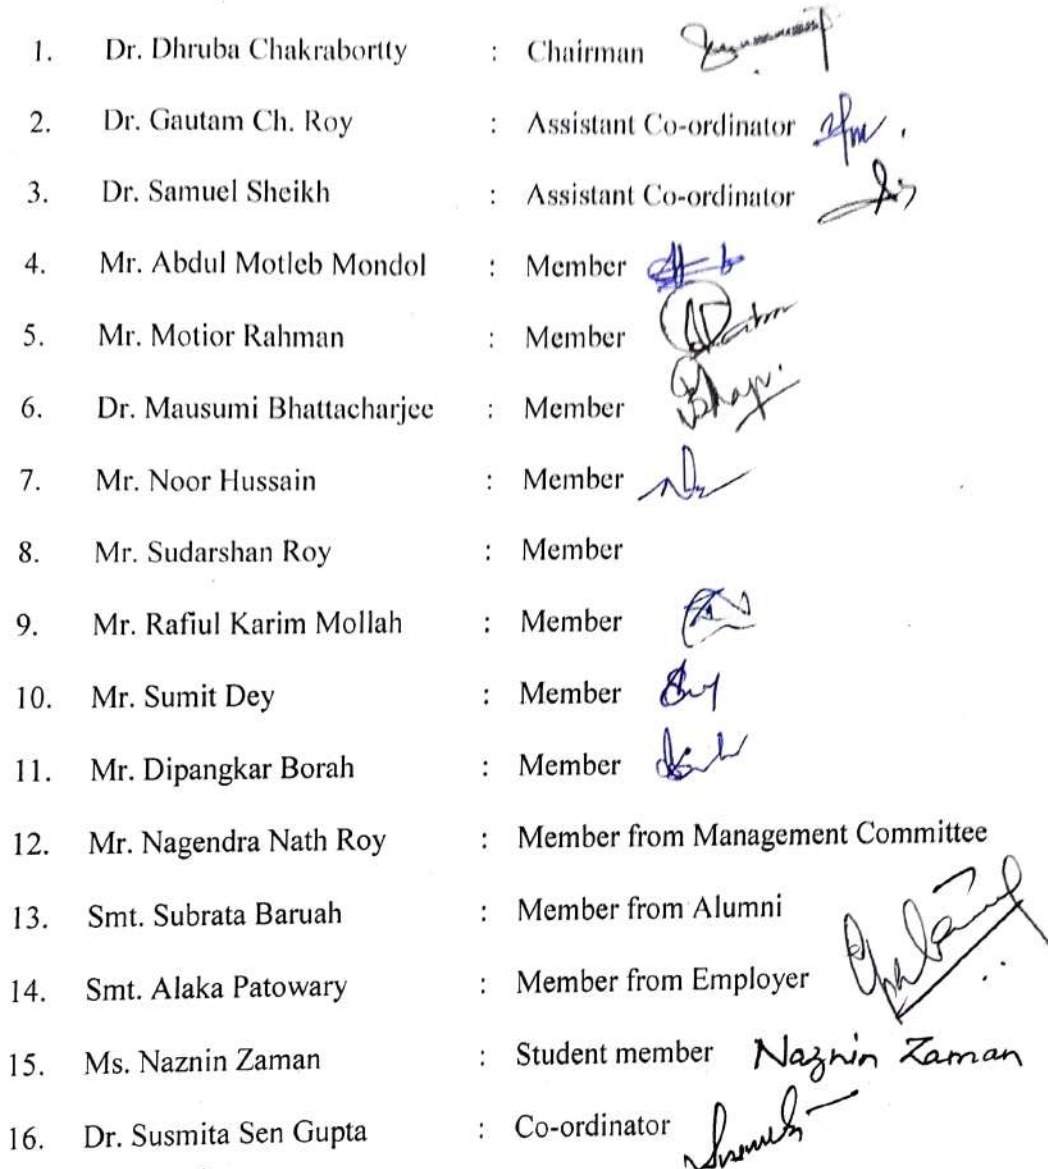 1. Dr. Dhruba Chakrabortty : Chairman
2. Dr. Gautam Ch. Roy : Assistant Co-ordinator
3. Dr. Samuel Sheikh : Assistant Co-ordinator
4. Mr. Abdul Motleb Mondol : Member
5. Mr. Motior Rahman : Member
6. Dr. Mausumi Bhattacharjee : Member
7. Mr. Noor Hussain : Member
8. Mr. Sudarshan Roy : Member
9. Mr. Rafiul Karim Mollah : Member
10. Mr. Sumit Dey : Member
11. Mr. Dipangkar Borah : Member
12. Mr. Nagendra Nath Roy : Member from Management Committee
13. Smt. Subrata Baruah : Member from Alumni
14. Smt. Alaka Patowary : Member from Employer
15. Ms. Naznin Zaman : Student member Naznin Zaman
16. Dr. Susmita Sen Gupta : Co-ordinator